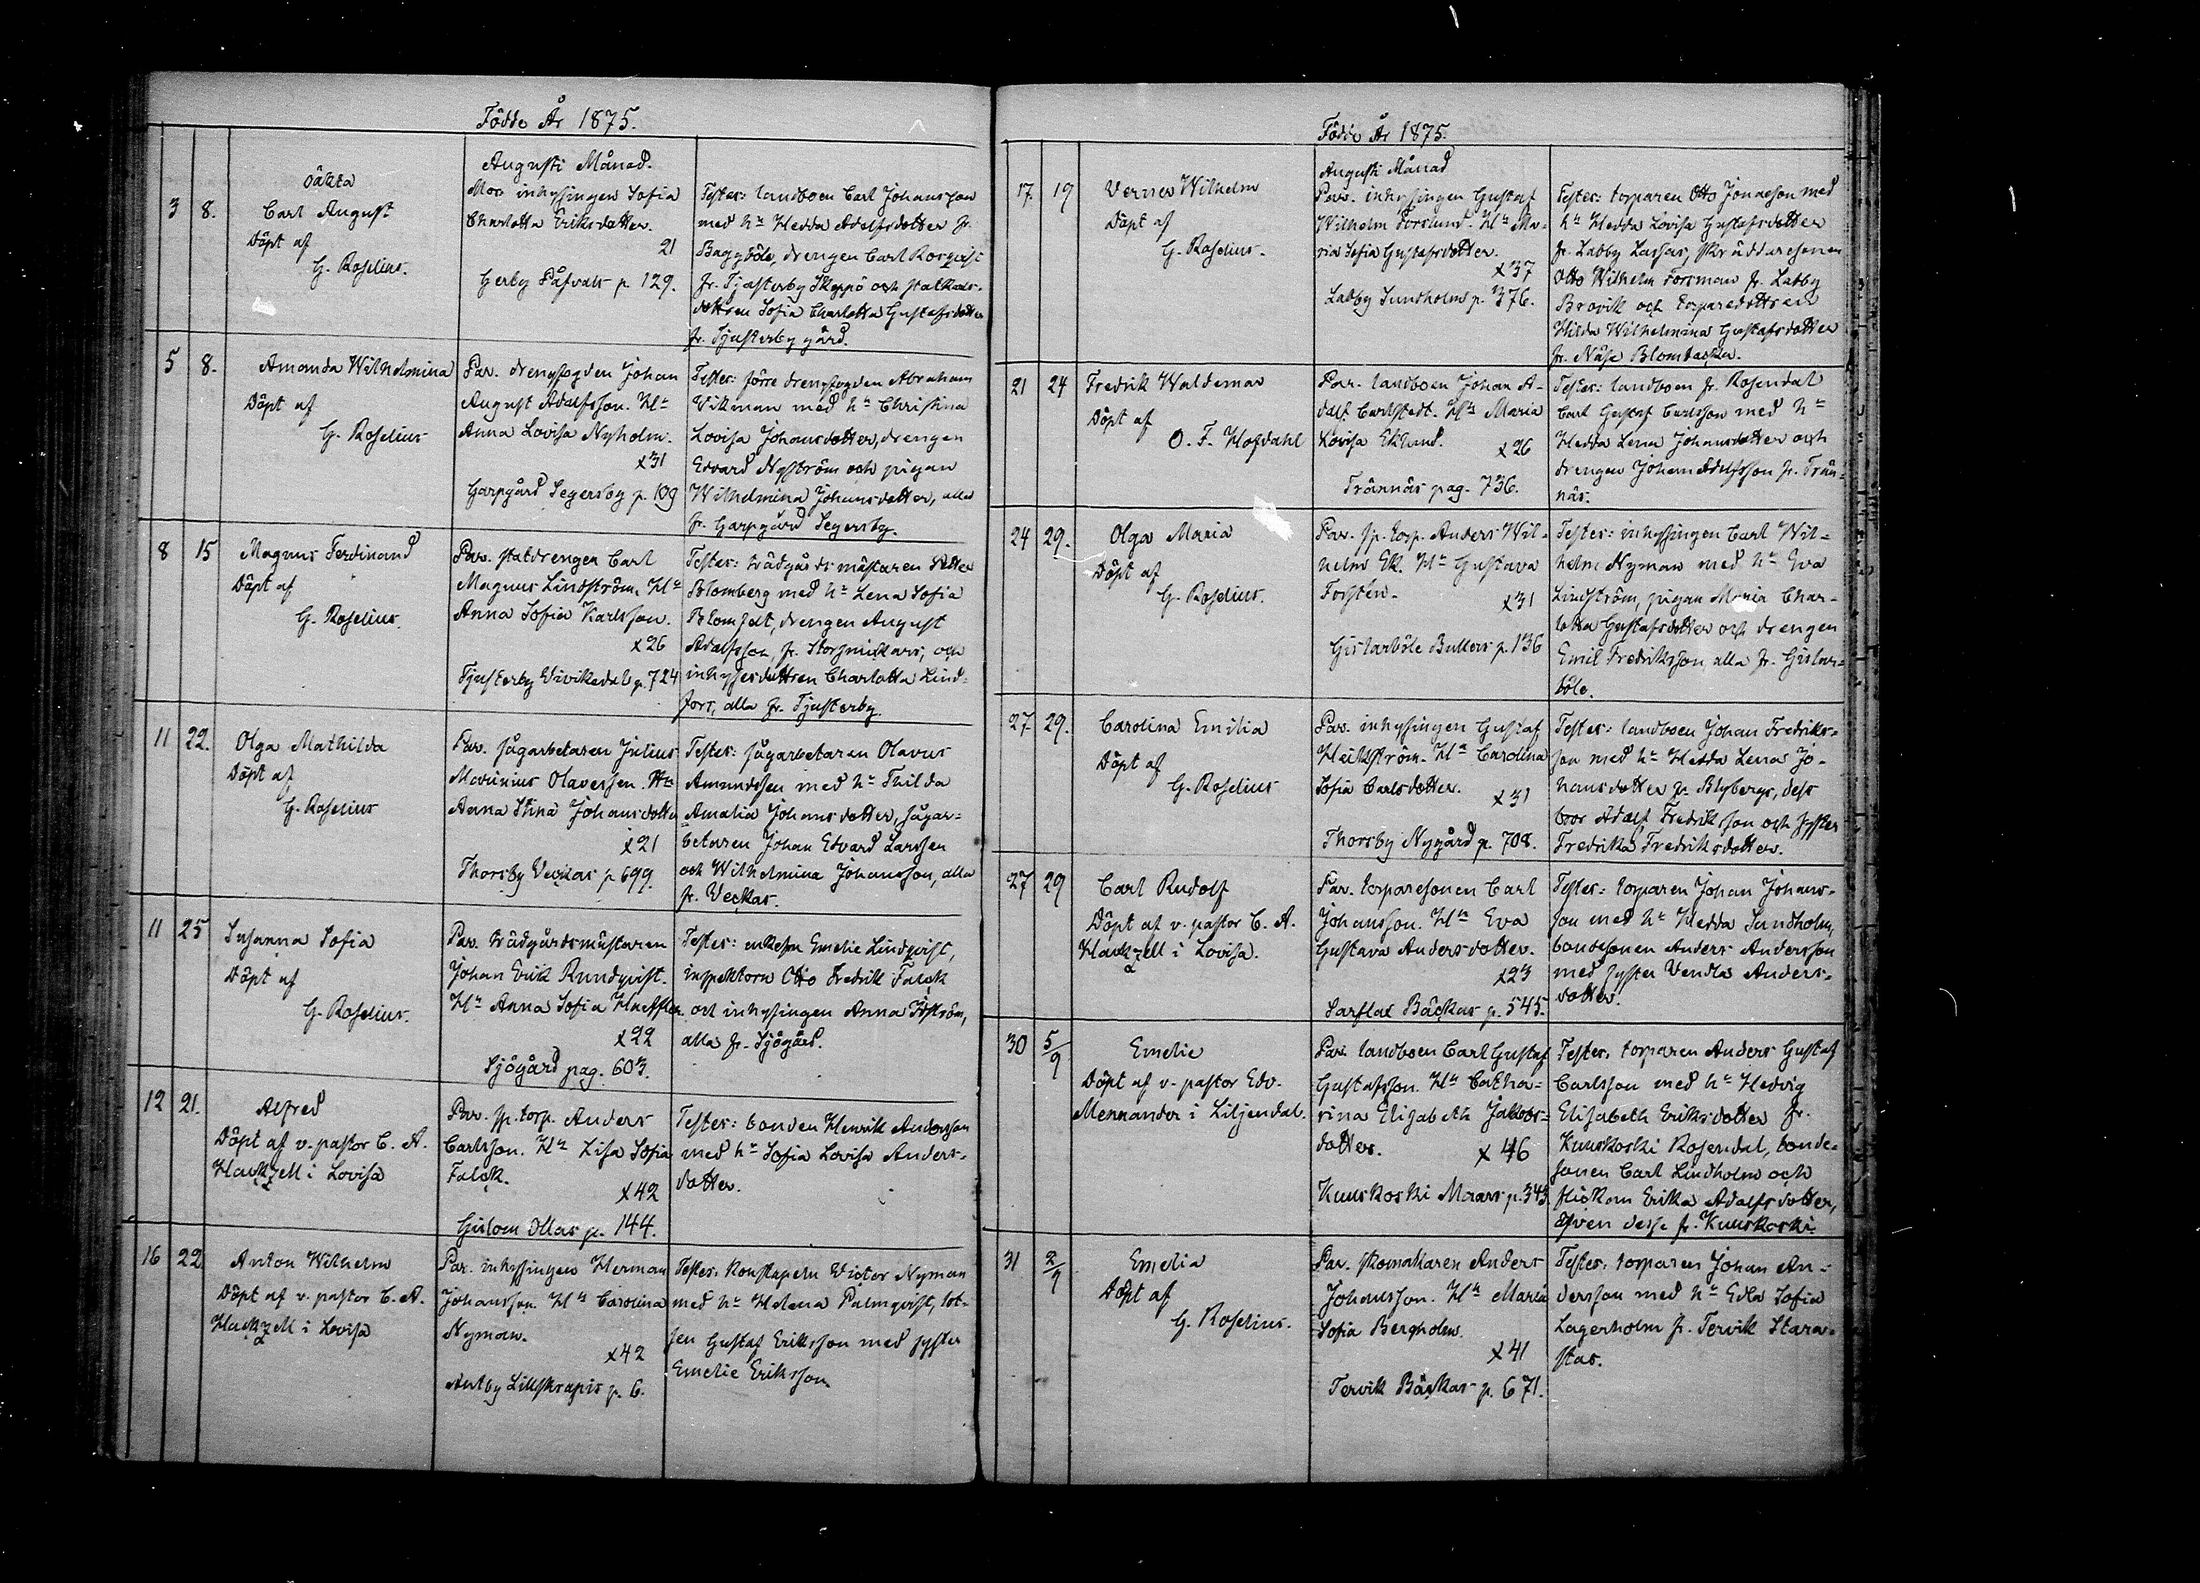 Födde År 1875.
Augusti Månad.
3 8.
oäkta
Carl August
Döpt af
G. Roselius.
Mor. inhysingen Sofia
Charlotta Eriksdotter.
21
Gerby Påfvals p. 129.
Tester: landboen Carl Johansson
med hn Hedda Adolfsdotter fr.
Baggböle, drengen Carl Rosqvist
fr. Tjusterby Skeppö och statkarls-
dottren Sofia Charlotta Gustafsdotter
fr. Tjusterby gård.
5 8.
Amanda Wilhelmina
Döpt af
G. Roselius
Par. drengfogden Johan
August Adolfsson. Hn
Anna Lovisa Nyholm.
x31
Garpgård Segersby p. 109
Tester: förre drengfogden Abraham
Vikman med hn Christina
Lovisa Johansdotter, drengen
Edvard Nyström och pigan
Wilhelmina Johansdotter, alla
fr. Garpgård Segersby.
8 15
Magnus Ferdinand
Döpt af
G. Roselius.
Par. statdrengen Carl
Magnus Lindström. Hn
Anna Sofia Karlsson.
x26
Tjusterby Vivikedal p. 724
Tester: trädgårdsmästaren Petter
Blomberg med hn Lena Sofia
Blomfelt, drengen August
Adolfsson, fr. Storsmickars, och
inhysesdottren Charlotta Lind-
fors, alla fr. Tjusterby.
11 22.
Olga Mathilda
Döpt af
G. Roselius
Par. sågarbetaren Julius
Marinius Olavessen. Hn
Anna Stina Johansdotter
x21
Thorsby Veckas p 699.
Tester: sågarbetaren Olavus
Amundssen med hn Thilda
Amalia Johansdotter, sågar-
betaren Johan Edvard Larssen
och Wilhelmina Johansson, alla
fr. Veckas.
11 25
Susanna Sofia
Döpt af
G. Roselius.
Par. trädgårdsmästaren
Johan Erik Rundqvist.
Hn Anna Sofia
x22
Sjögård pag. 603.
Tester: enkefru Emelie Lindqvist,
inspektorn Otto Fredrik Falck
och inhysingen Anna Sjöström,
alla fr. Sjögård.
12 21.
Alfred
Döpt af v. pastor C. A.
Hackzell i Lovisa
Par. sp. torp. Anders
Carlsson. Hn Lisa Sofia
Falck.
x42
Gislom Ollas p. 144.
Tester: bonden Henrik Andersson
med hn Sofia Lovisa Anders-
dotter.
16 22
Anton Wilhelm
Döpt af v. pastor C. A.
Hackzell i Lovisa
Par. inhysingen Herman
Johansson. Hn Carolina
Nyman.
x42
Antby Lillskrapis p. 6.
Tester: konstapeln Victor Nyman
med hn Helena Palmqvist, lot-
sen Gustaf Eriksson med syster
Emelie Eriksson
Födde År 1875.
Augusti Månad
17. 19
Verner Wilhelm
Döpt af
G. Roselius.
Par. inhysingen Gustaf
Wilhelm Forslund. Hn Ma-
ria Sofia Gustafsdotter.
x37
Labby Sundholms p. 376.
Tester: torparen Otto Jonasson med
hn Hedda Lovisa Gustafsdotter
fr. Labby Lassas, skräddaresonen
Otto Wilhelm Forsman fr. Labby
Brovik och torparedottren
Hilda Wilhelmina Gustafsdotter
fr. Näse Blombacka.
21 24
Fredrik Waldemar
Döpt af
O. F. Hofdahl
Par. landboen Johan A-
dolf Carlstedt. Hn Maria
Lovisa Eklund.
x26
Trännäs pag. 736.
Tester: landboen fr. Rosendal
Carl Gustaf Carlsson med hn
Hedda Lena Johansdotter och
drengen Johan Adolfsson fr. Trän-
näs.
24 29.
Olga Maria
Döpt af
G. Roselius.
Par. sp. torp. Anders Wil-
helm Ek. Hn Gustava
Forstén.
x31
Gislarböle Bullers p. 136
Tester: inhysingen Carl Wil-
helm Nyman med hn Eva
Lindström, pigan Maria Char-
lotta Gustafsdotter och drengen
Emil Fredriksson, alla fr. Gislar-
böle.
27. 29.
Carolina Emilia
Döpt af
G. Roselius
Par. inhysingen Gustaf
Heikström. Hn Carolina
Sofia Carlsdotter.
x31
Thorsby Nygård p. 708.
Tester: landboen Johan Fredriks-
son med hn Hedda Lena Jo-
hansdotter fr. Blybergs, dess
bror Adolf Fredriksson och syster
Fredrika Fredriksdotter.
27 29
Carl Rudolf
Döpt af v. pastor C. A.
Hackzell i Lovisa.
Par. torparesonen Carl
Johansson. Hn Eva
Gustava Andersdotter.
x23
Sarflax Bäckas p. 545.
Tester: torparen Johan Johans-
son med hn Hedda Sundholm,
bondesonen Anders Andersson
med syster Vendla Anders-
dotter.
30 5/9
Emelie
Döpt af v. pastor Edv.
Mennander i Liljendal.
Par. landboen Carl Gustaf
Gustafsson. Hn Catha-
rina Elisabeth Jakobs-
dotter.
x46
Kuuskoski Moars p. 343.
Tester: torparen Anders Gustaf
Carlsson med hn Hedvig
Elisabeth Eriksdotter fr.
Kuuskoski Rosendal, bonde-
sonen Carl Lindholm och
flickan Erika Adolfsdotter,
även desse fr. Kuuskoski.
31 2/9
Emelia
Döpt af
G. Roselius.
Par. skomakaren Anders
Johansson. Hn Maria
Sofia Bergholm.
x41
Tervik Bäckas p. 671.
Tester: torparen Johan An-
dersson med hn Edla Sofia
Lagerholm fr. Tervik Stara-
stas.